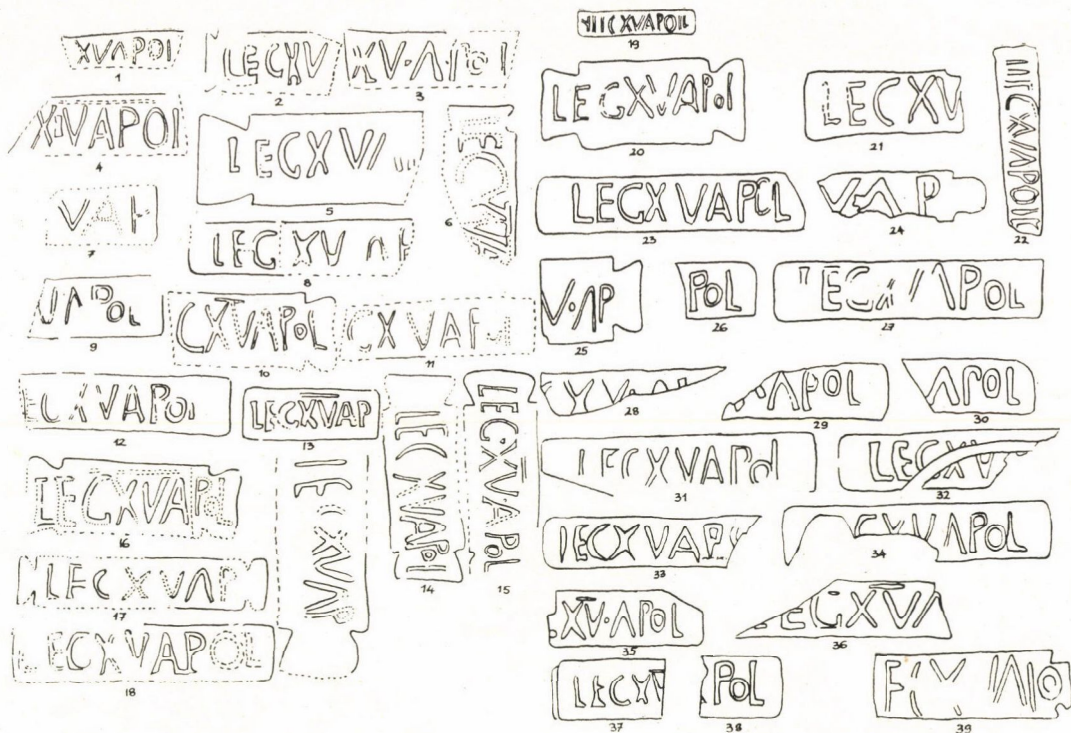 XVAPOI
1
LECXV
2
XV·A·POI
3
XVAPOI
4
LEGXV
5
6
VAP
7
LEGXV AP
8
VAPOL
9
CXVAPOL
10
CXVAP
11
ECXVAPOI
12
LECXVAP
13
LECXVAPOI
14
LEG·XV·A·POL
15
LEGXVAPOL
16
LECXVAP
17
LECXVAPOL
18
IECXVAP
IIICXVAPOIL
19
LEGXVAPOI
20
LECXV
21
IIICXVAPOIL
22
LEGXVAPOL
23
VAP
24
V·AP
25
POL
26
EG APOL
27
XV
28
APOL
29
APOL
30
IECXVAPOL
31
LECXV
32
IECXVAP
33
CXVAPOL
34
XV·APOL
35
EGXVA
36
LECXV
37
POL
38
39